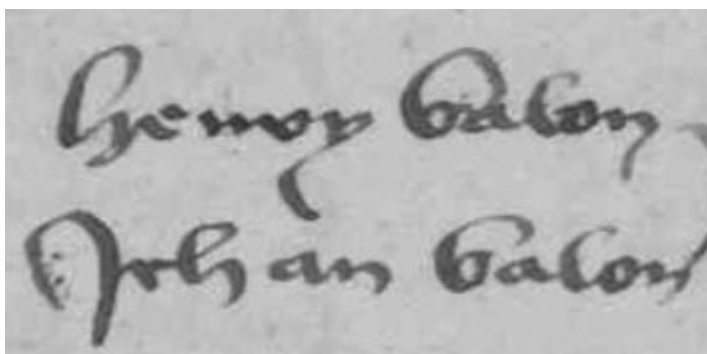 henry balon
Jehan balon